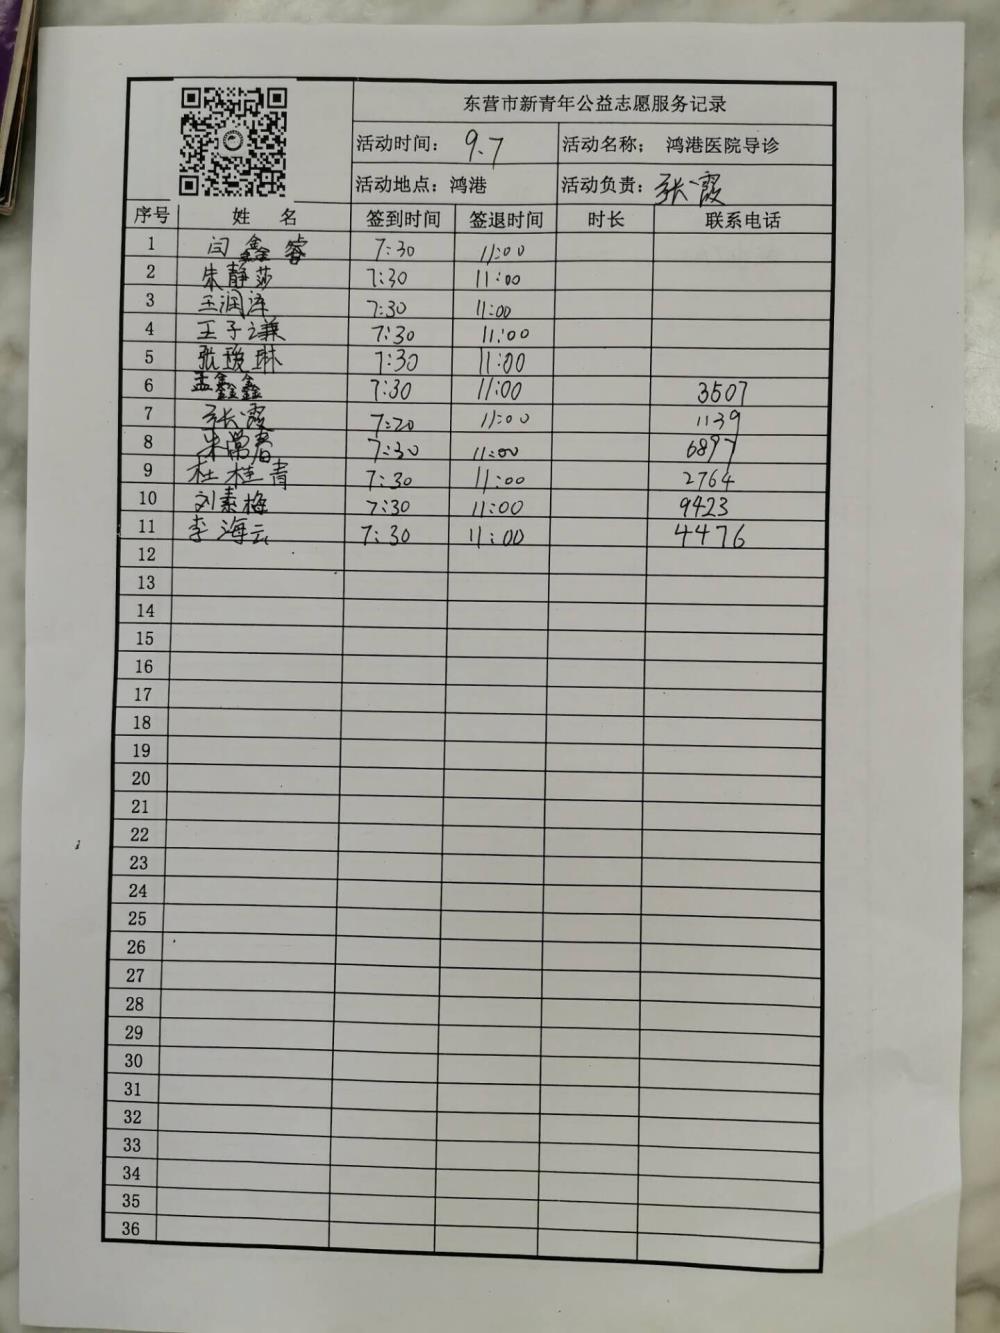 东营市新青年公益志愿服务记录
活动时间： 9.7 活动名称； 鸿港医院导诊
活动地点：鸿港 活动负责：张霞
序号 姓 名 签到时间 签退时间 时长 联系电话
1 闫鑫睿 7:30 11:00
2 朱静莎 7:30 11:00
3 王润泽 7:30 11:00
4 王子谦 7:30 11:00
5 张瑷琳 7:30 11:00
6 孟鑫鑫 7:30 11:00 3507
7 张霞 7:20 11:00 1139
8 常春 7:30 11:00 6897
9 杜桂青 7:30 11:00 2764
10 刘素梅 7:30 11:00 9423
11 李海云 7:30 11:00 4476
12
13
14
15
16
17
18
19
20
21
22
23
24
25
26
27
28
29
30
31
32
33
34
35
36